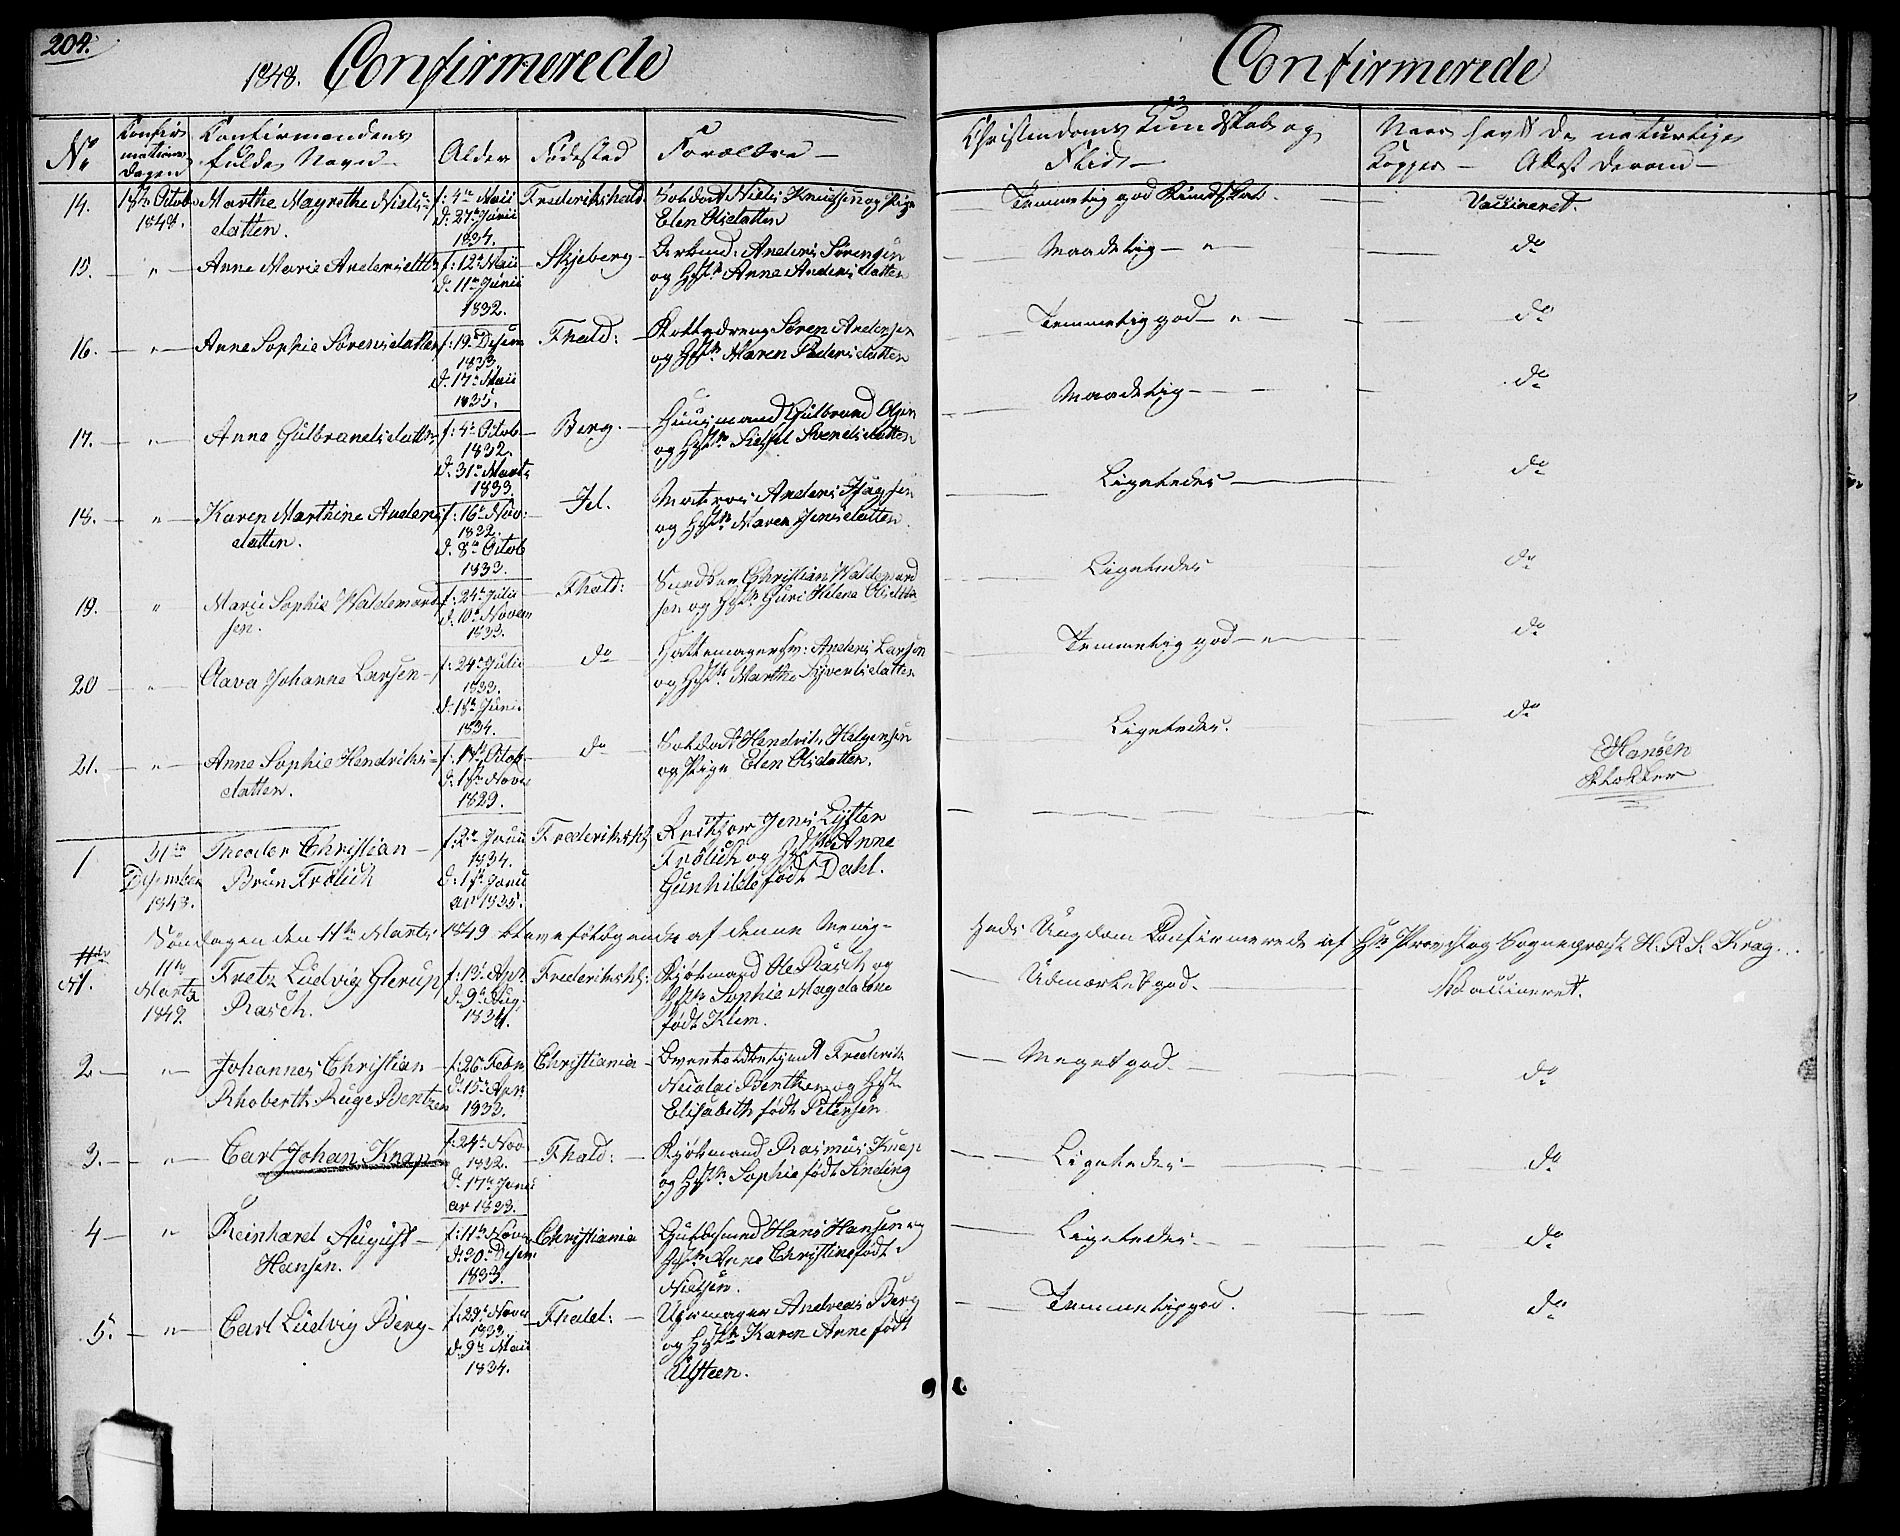 204.
1848. Confirmerede
Confirmerede
No
Confir
mations
Dagen
Confirmandens
fulde Navn
Alder
Födested
Forældre
Christendoms Kundskab og
Flid
Naar havt de naturlige
Kopper Attest derom
14.
Octob
1848.
Marthe Magrethe Niels
datter.
f: 4de Maii
d: 27de Junii
1834.
Frederikshald
Soldat Niels Knudsen og Pige
Elen Olsdatter
Temmelig god Kundskab.
Vaccineret.
15. " Anne Marie Andersdtter
f: 12te Maii
d: 11te Junii
1832.
Skjeberg
Arbmd: Anders Sörensen
og Hst: Anne Andersdatter
Maadelig "
do
16. " Anne Sophie Sörensdatter
f: 19de Desem
1833.
d: 17de Maii
1835.
Fhald:
Sören Andersen
og Hst: Maren Pedersdatter
Temmelig god "
do
17. " Anne Gulbrandsdatter
f: 4de Octob
1832.
d: 31te Marts
1833.
Berg.
Huusmand Gulbrand Olsen
og Hst: Svendsdatter
Maadelig
do
18. " Karen Marthine Anders
datter.
f: 16de Nov:
1832.
d: 8de Octob
1833.
Id.
Matros Anders Aagesen
og Hst: Maren Jensdatter.
Ligeledes
do
19. " Marie Sophie Waldemard
sen.
f: 24de Julii
d: 10de Novem
1833.
Fhald:
Christian Waldemard
sen og Hst: Guri Helene Olsdtter
Ligeledes
do
20 " Olava Johanne Larsen
f: 24de Julii
1833.
d: Junii
1834.
do
Hattemagersv: Anders Larsen
og Hst: Marthe Syvertsdatter
Temmelig god "
do
21. " Anne Sophie Hendriks
datter.
f: Octob
d: Novem
1829.
do
Soldat Hendrik Helgesen
og Pige Elen Olsdatter.
Ligeledes.
do
Hansen
Klokker
1
31te
Desember
1848.
Theodor Christian
Brun Frölich
f: 2den Junii
1834.
d: Janu
ar 1835.
Frederikshld
Jens Lysten
Frölich og Hst: Anne
Gunhilde födt Dahl.
Söndagen den 11te Marts 1849 bleve fölgende af denne Menig-
heds Ungdom Confirmerede af Hr Provst og Sognepræst H. P. S. Krag.
1.
11te
Marts
1849.
Fretz Ludvig Glerup
Rasch.
f: 13de Apr
d: 9de Aug:
1834.
Frederikshld:
Kjöbmand Ole Rasch og
Hst: Sophie Magdalene
födt Klem.
Udmærket god.
Vaccineret.
2. " Johannes Christian
Rhoberth Ruge Bentzen
f: 26. Febr
d: 15de Apr:
1833.
Christiania
Frederik
Nicolai Bentzen og Hst.
Elisabeth födt Petersen
Meget god.
do
3. " Carl Johan Knap
f: 24de Nov
1832.
d: 17de Janu
ar 1833.
Fhald:
Kjöbmand Rasmus Knap
og Hst: Sophie födt Sinding
Ligeledes
do
4 " Reinhard August
Hansen.
f: 11te Nov
d: 20de Desem
1833.
Christiania
Guldsmed Hans Hansen og
Hst: Anne Christine födt
Nielsen.
Ligeledes.
do
5. " Carl Ludvig Berg
f: 29de Novem
1833.
d: 9de Maii
1834.
Fhald:
Uhrmager Andreas Berg
og Hst: Karen Anne födt
Ulsteen.
Temmelig god.
do